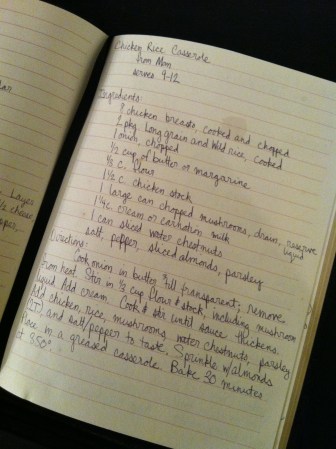 Chicken Rice Casserole
from Mom
serves 9-12
Ingredients:
8 chicken breasts, cooked and chopped
2 pkg. Long grain and Wild rice, cooked
1 onion, chopped
1/2 cup of butter or margarine
1/3 c. flour
1 1/2 c. chicken stock
1 large can chopped mushrooms, drain, reserve liquid
1 1/4 c. cream or carnation milk
1 can sliced water chestnuts
salt, pepper, sliced almonds, parsley
Cooking:
Cook onion in butter till transparent; remove
from heat. Stir in 1/3 cup flour & stock, including mushroom
liquid. Add cream. Cook & stir until sauce thickens.
Add chicken, rice, mushrooms, water chestnuts, parsley
(2T), and salt/pepper to taste. Sprinkle w/almonds
Place in a greased casserole. Bake 30 minutes
at 350°.
Layer
1/2 cheese